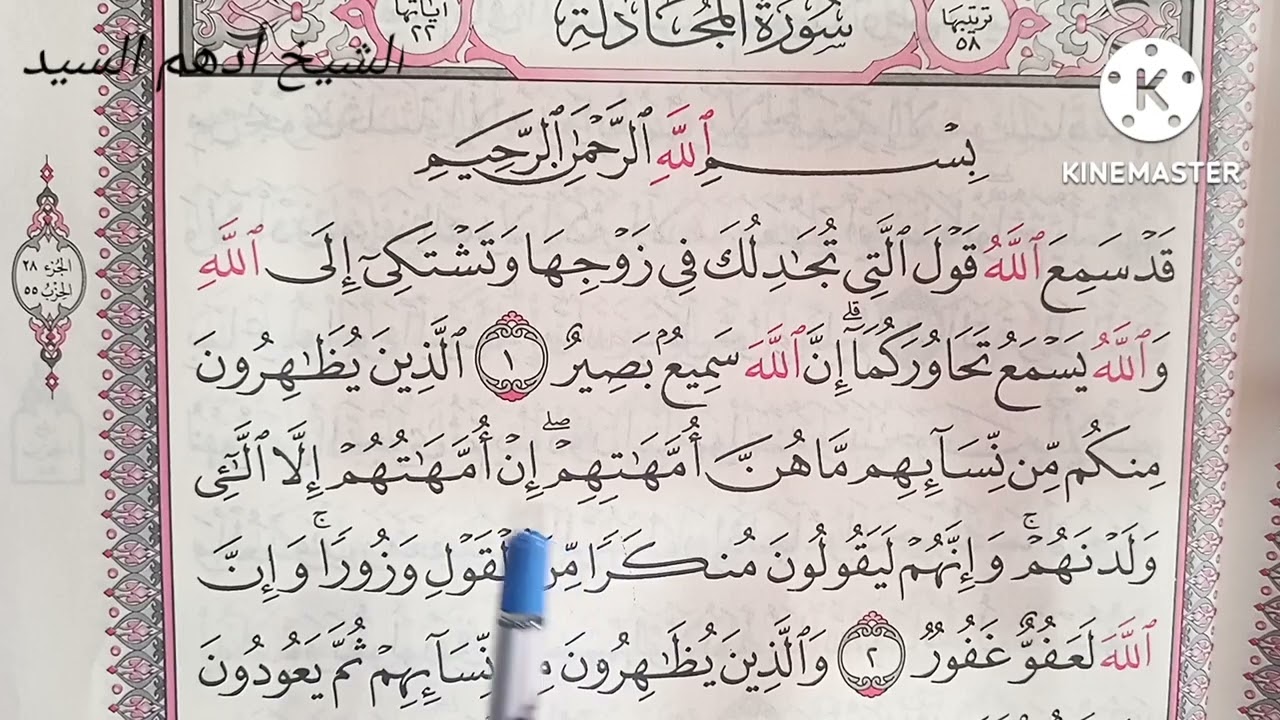 سُورَةُ المُجَادلَةِ
ترتيبها ٥٨
آياتها ٢٢
الشيخ أدهم السيد
KINEMASTER
بِسْمِ ٱللَّهِ ٱلرَّحْمَٰنِ ٱلرَّحِيمِ
قَدْ سَمِعَ ٱللَّهُ قَوْلَ ٱلَّتِى تُجَٰدِلُكَ فِى زَوْجِهَا وَتَشْتَكِىٓ إِلَى ٱللَّهِ
وَٱللَّهُ يَسْمَعُ تَحَاوُرَكُمَآ ۚ إِنَّ ٱللَّهَ سَمِيعٌۢ بَصِيرٌ ١ ٱلَّذِينَ يُظَٰهِرُونَ
مِنكُم مِّن نِّسَآئِهِم مَّا هُنَّ أُمَّهَٰتِهِمْ ۖ إِنْ أُمَّهَٰتُهُمْ إِلَّا ٱلَّٰٓـِٔى
وَلَدْنَهُمْ ۚ وَإِنَّهُمْ لَيَقُولُونَ مُنكَرًا مِّنَ ٱلْقَوْلِ وَزُورًا ۚ وَإِنَّ
ٱللَّهَ لَعَفُوٌّ غَفُورٌ ٢ وَٱلَّذِينَ يُظَٰهِرُونَ نِّسَآئِهِمْ ثُمَّ يَعُودُونَ
الجزء ٢٨
الحزب ٥٥